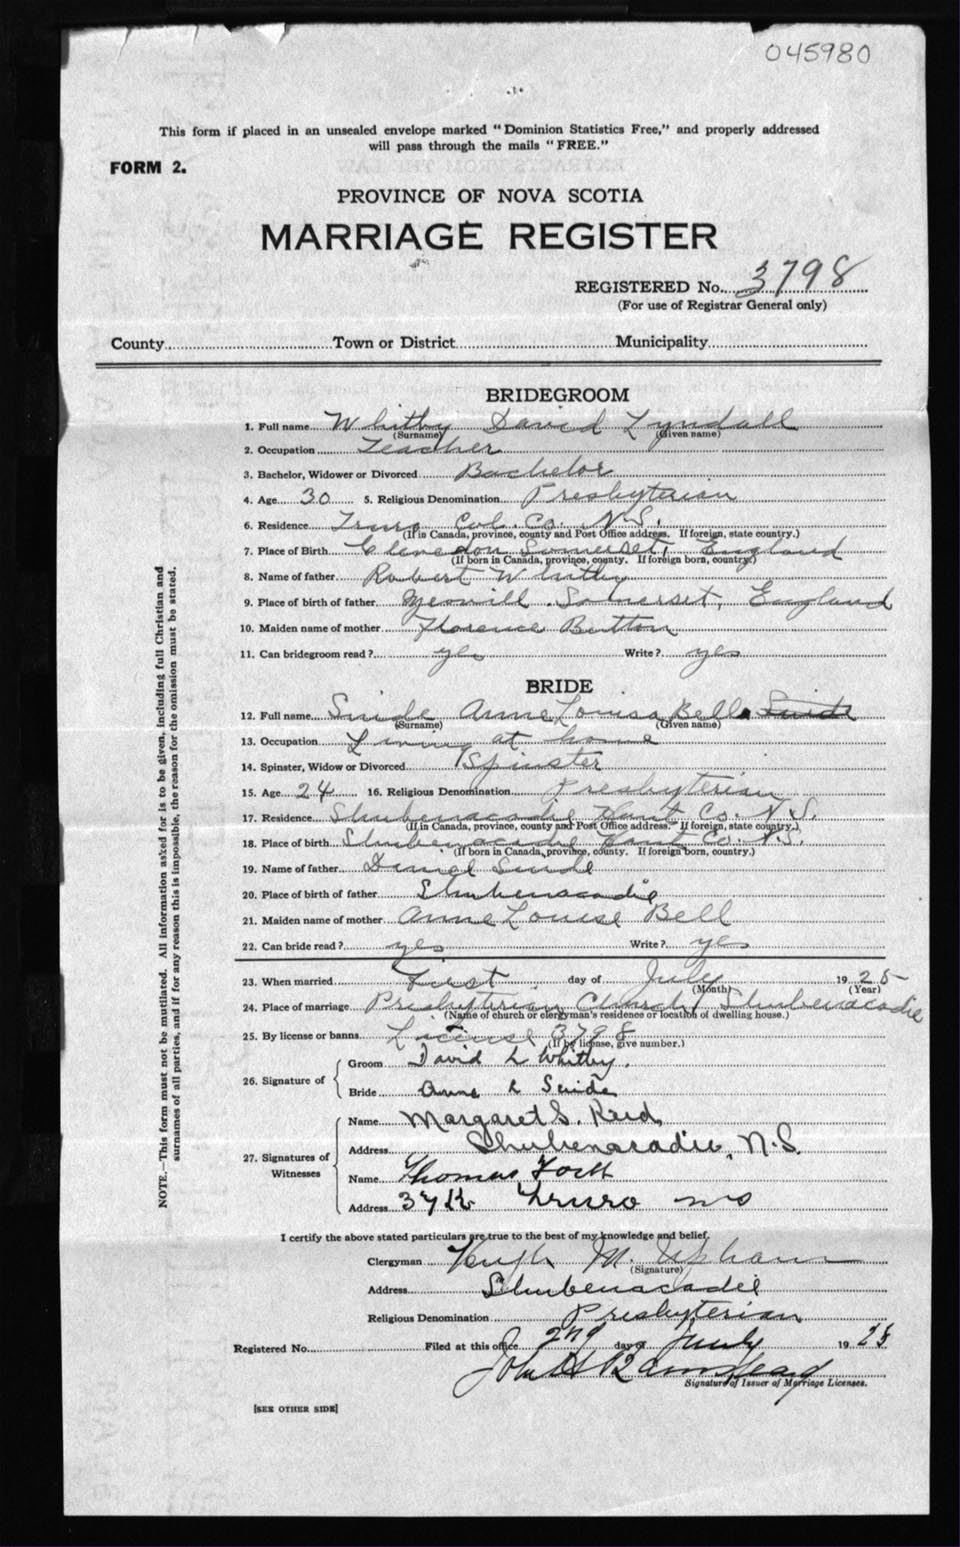 045980
This form if placed in an unsealed envelope marked "Dominion Statistics Free," and properly addressed
will pass through the mails "FREE."
FORM 2.
PROVINCE OF NOVA SCOTIA
MARRIAGE REGISTER
REGISTERED No. 3798
(For use of Registrar General only)
County Town or District Municipality
BRIDEGROOM
1. Full name Whitby David Lyndall
(Surname) (Given name)
2. Occupation Teacher
3. Bachelor, Widower or Divorced Bachelor
4. Age 30 5. Religious Denomination Presbyterian
6. Residence Truro Col. Co. N.S.
(If in Canada, province, county and Post Office address. If foreign, state country.)
7. Place of Birth Clevedon Somerset, England
(If born in Canada, province, county. If foreign born, country.)
8. Name of father Robert Whitby
9. Place of birth of father Yeovill Somerset, England
10. Maiden name of mother Florence Button
11. Can bridegroom read? yes Write? yes
BRIDE
12. Full name Suide Anne Louisa Bell Suide
(Surname) (Given name)
13. Occupation Living at home
14. Spinster, Widow or Divorced Spinster
15. Age 24 16. Religious Denomination Presbyterian
17. Residence Shubenacadie Hant Co. N.S.
(If in Canada, province, county and Post Office address. If foreign, state country.)
18. Place of birth Shubenacadie Hant Co. N.S.
(If born in Canada, province, county. If foreign born, country.)
19. Name of father Daniel Suide
20. Place of birth of father Shubenacadie
21. Maiden name of mother Anne Louise Bell
22. Can bride read? yes Write? yes
23. When married First day of July 1925
(Month) (Year)
24. Place of marriage Presbyterian Church Shubenacadie
(Name of church or clergyman's residence or location of dwelling house.)
25. By license or banns License 3798
(If by license, give number.)
26. Signature of Groom David L Whitby.
Bride Anne L Suide
27. Signatures of Witnesses Name Margaret S. Reid
Address Shubenacadie, N.S.
Name Thomas
Address Truro NS
I certify the above stated particulars are true to the best of my knowledge and belief.
Clergyman Hugh M. Upham
(Signature)
Address Shubenacadie
Religious Denomination Presbyterian
Registered No. Filed at this office 2nd day of July 1925
John
Signature of Issuer of Marriage Licenses.
[SEE OTHER SIDE]
NOTE.—This form must not be mutilated. All information asked for is to be given, including full Christian and
surnames of all parties, and if for any reason this is impossible, the reason for the omission must be stated.